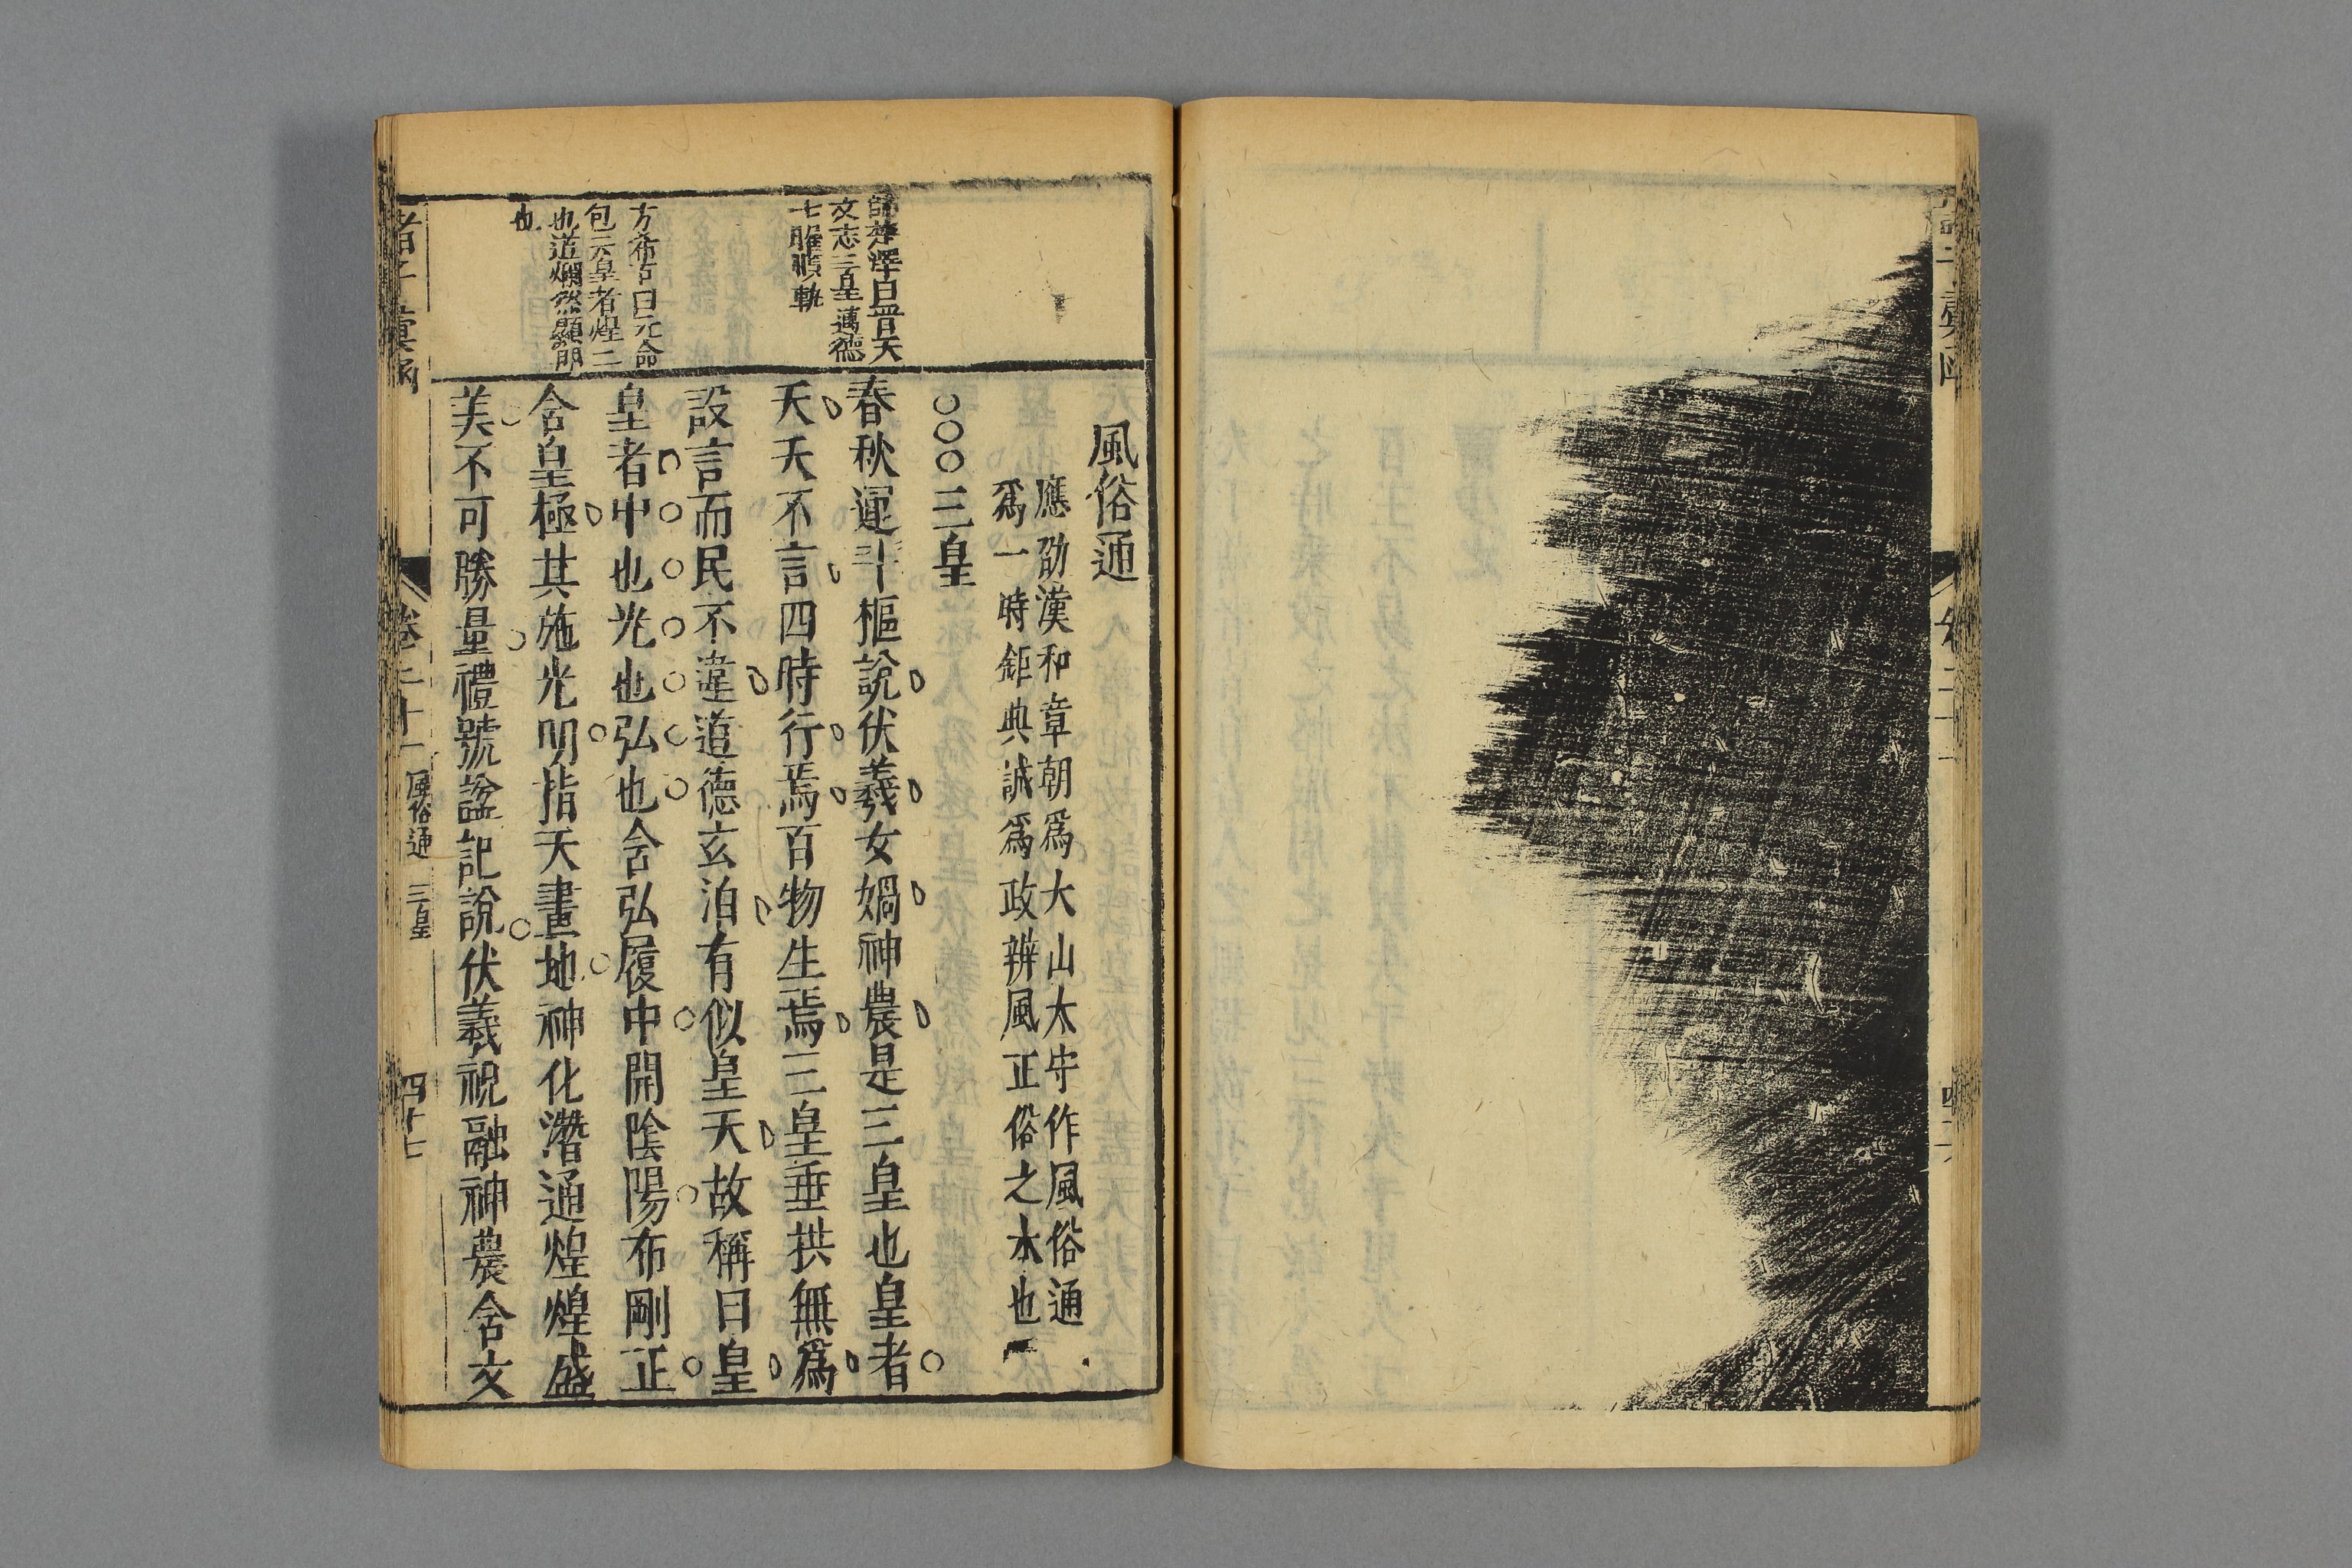 風俗通
應劭漢和章朝爲大山太守作風俗通
爲一時鉅典誠爲政辨風正俗之本也
○○○三皇
春秋運斗樞說伏羲女媧神農是三皇也皇者
天天不言四時行焉百物生焉三皇垂拱無爲
設言而民不違道德玄泊有似皇天故稱曰皇
皇者中也光也弘也含弘履中開陰陽布剛正
含皇極其施光明指天畫地神化潛通煌煌盛
美不可勝量禮號謚記說伏羲祝融神農含文
澤曰晋天
文志三皇邁德
七曜順軌
方希古曰元命
包云皇者煌二
也道爛然顯明
也
諸子彙函
卷二十一
風俗通 三皇
四十七